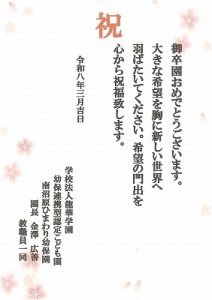 祝
御卒園おめでとうございます。
大きな希望を胸に新しい世界へ
羽ばたいてください。希望の門出を
心から祝福致します。
令和八年三月吉日
学校法人龍華学園
幼保連携型認定こども園
南沼原ひまわり幼保園
園長 金澤 広善
教職員一同